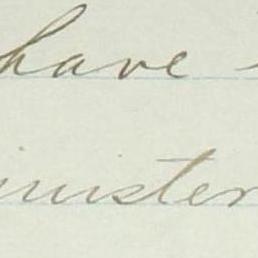 have
inister